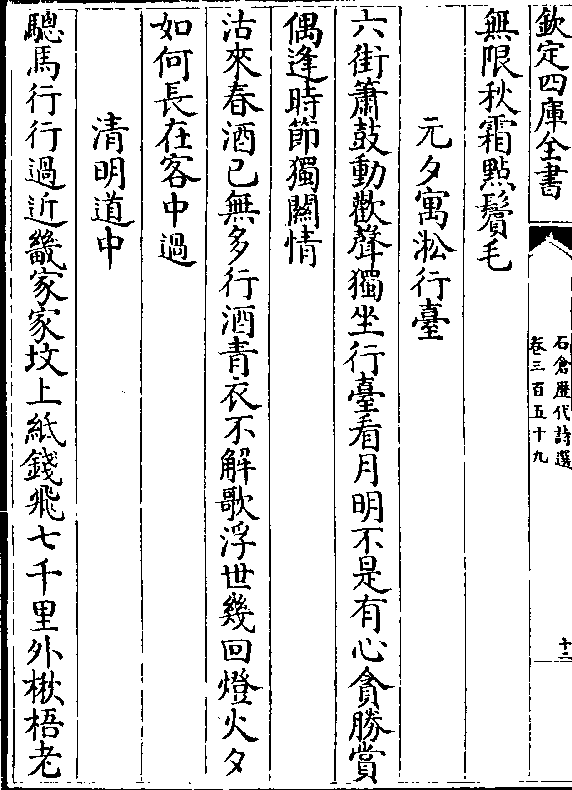 欽定四庫全書
石倉歷代詩選
卷三百五十九
十二
無限秋霜點鬢毛
元夕寓淞行臺
六街簫鼓動歡聲獨坐行臺看月明不是有心貪勝賞
偶逢時節獨關情
沽來春酒已無多行酒青衣不解歌浮世幾回燈火夕
如何長在客中過
清明道中
驄馬行行過近畿家家墳上紙錢飛七千里外楸梧老